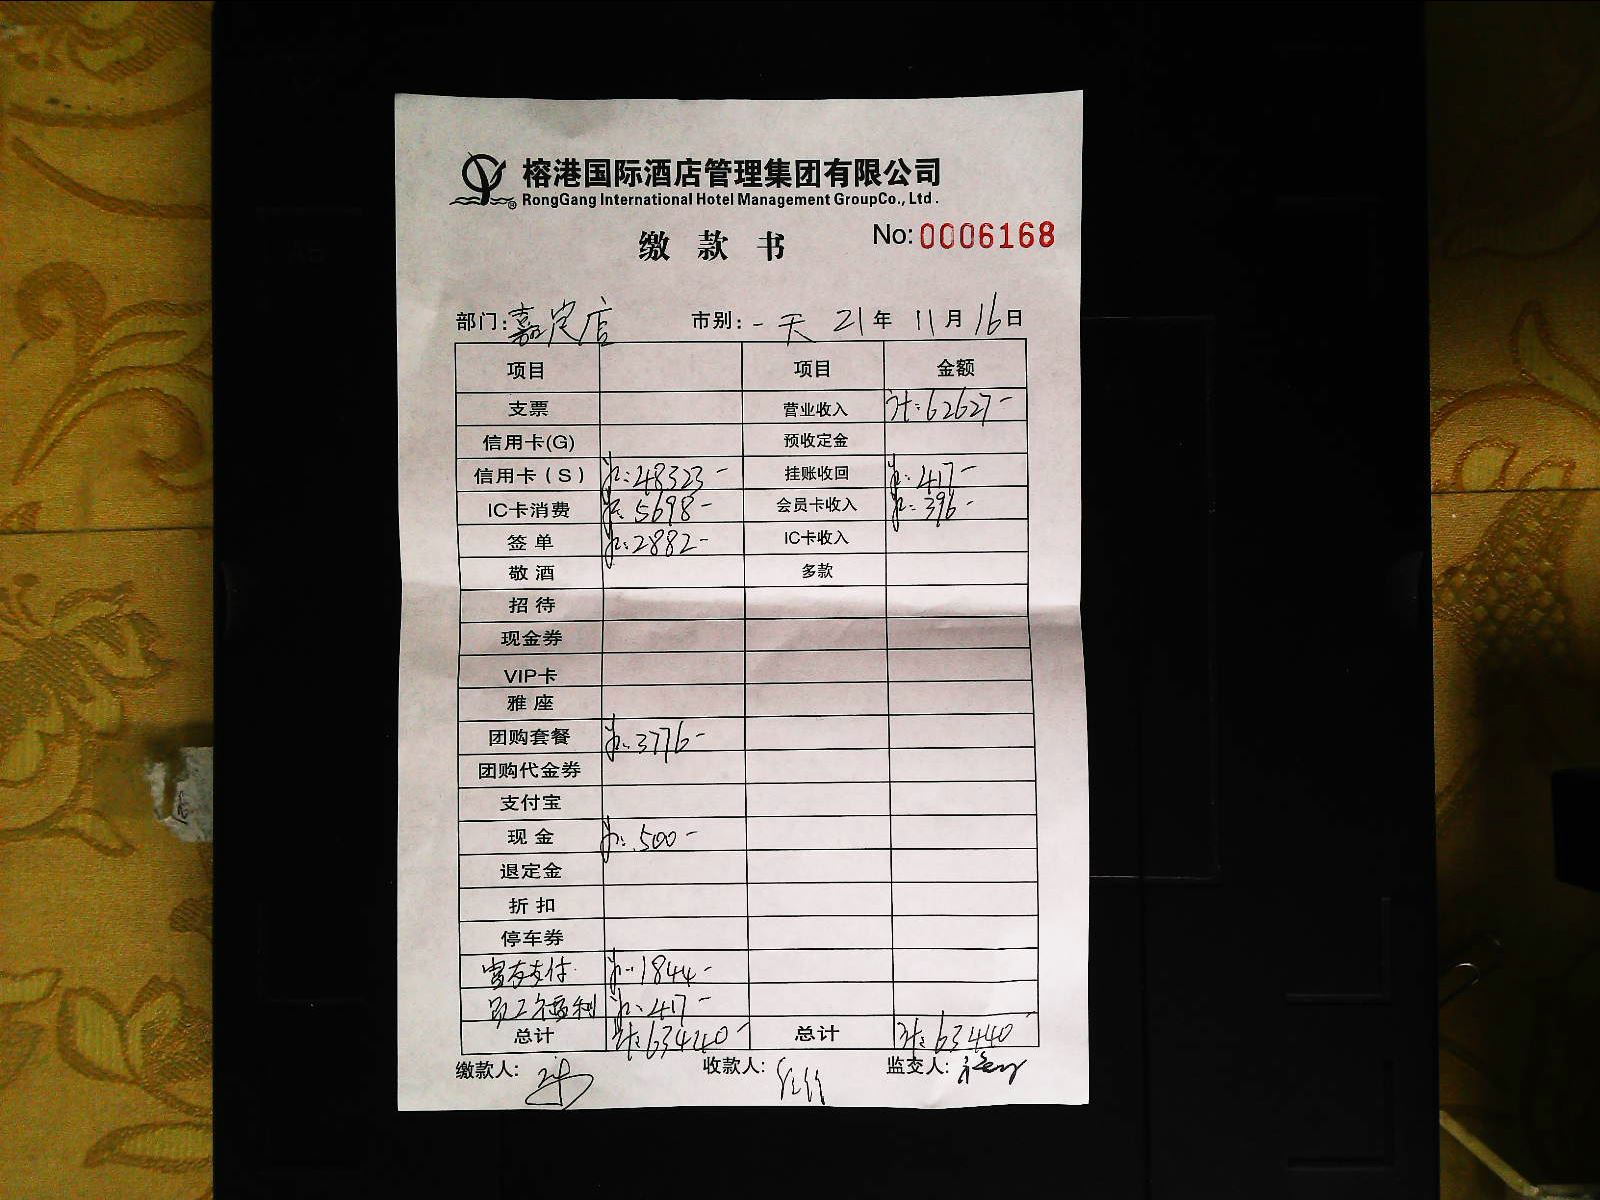 榕港国际酒店管理集团有限公司
RongGang International Hotel Management GroupCo., Ltd.
缴款书 No:0006168
部门:嘉定店 市别:一天 21年 11月 16日
项目 项目 金额
支票 营业收入 计:62627-
信用卡(G) 预收定金
信用卡(S) 计:48323- 挂账收回 计:417-
IC卡消费 计:5698- 会员卡收入 计:396-
签单 计:2882- IC卡收入
敬酒 多款
招待
现金券
VIP卡
雅座
团购套餐 计:3776-
团购代金券
支付宝
现金 计:500-
退定金
折扣
停车券
富友支付 计:1844-
员工福利 计:417-
总计 计:63440- 总计 计:63440-
缴款人: 收款人: 监交人: